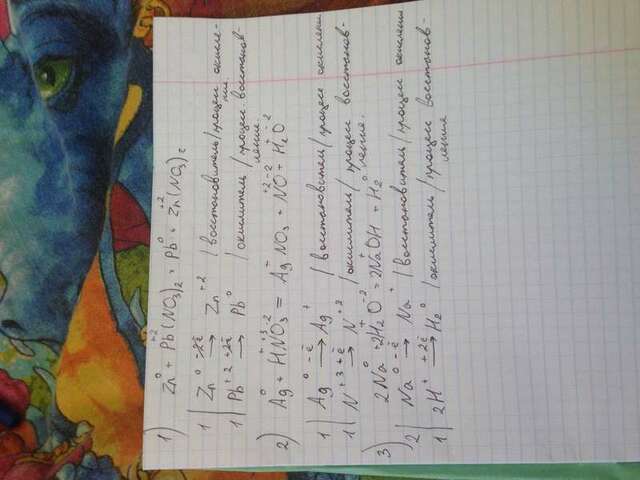 1) Zn⁰ + Pb⁺²(NO₃)₂ = Pb⁰ + Zn⁺²(NO₃)₂
1 | Zn⁰ -2ē → Zn⁺² | восстановитель/процесс окисле-
ния.
1 | Pb⁺² +2ē → Pb⁰ | окислитель/процесс восстанов-
ление
2) Ag⁰ + H⁺N⁺³O⁻²₃ = Ag⁺NO₃ + N⁺²O⁻² + H⁺₂O⁻²
1 | Ag⁰ -ē → Ag⁺ | восстановитель/процесс окисления
1 | N⁺³ +ē → N⁺² | окислитель/процесс восстанов-
ление.
3) 2Na⁰ + 2H⁺₂O⁻² = 2Na⁺OH + H₂⁰
2 | Na⁰ -ē → Na⁺ | восстановитель/процесс окисления
1 | 2H⁺ +2ē → H₂⁰ | окислитель/процесс восстанов-
ление